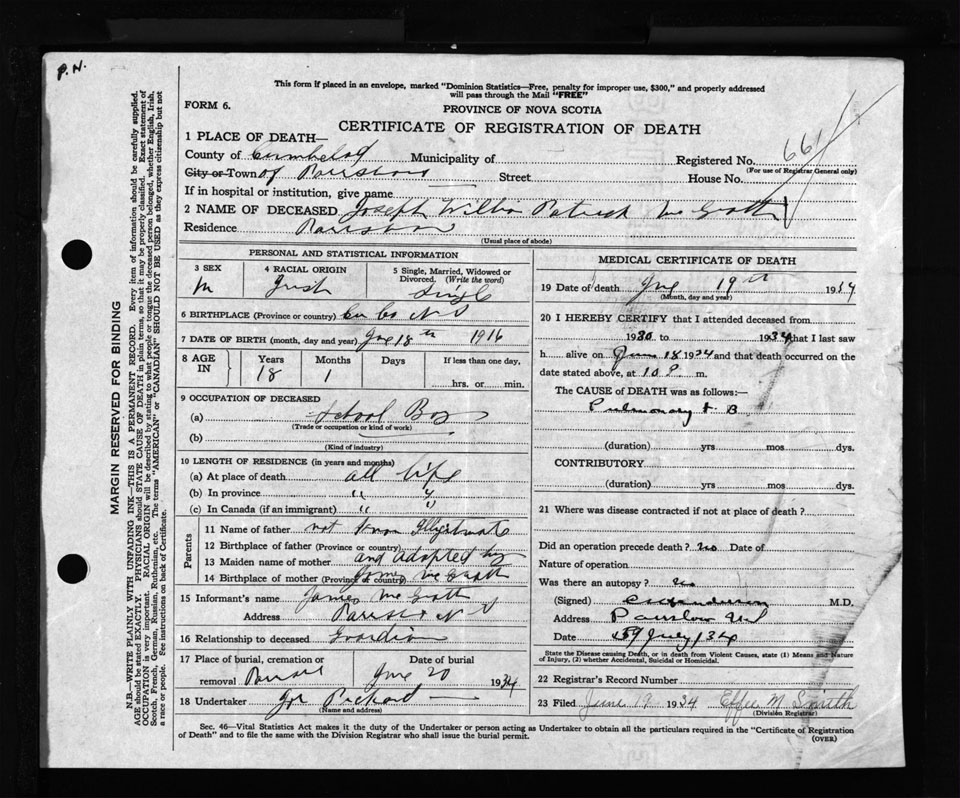 P.N.
This form if placed in an envelope, marked "Dominion Statistics—Free, penalty for improper use, $300," and properly addressed
will pass through the Mail "FREE"
FORM 6.
PROVINCE OF NOVA SCOTIA
CERTIFICATE OF REGISTRATION OF DEATH
661
1 PLACE OF DEATH—
County of Municipality of Registered No.
(For use of Registrar General only)
City or Town of Parrsboro Street House No.
If in hospital or institution, give name
2 NAME OF DECEASED Joseph Patrick McGrath
Residence Parrsboro
(Usual place of abode)
PERSONAL AND STATISTICAL INFORMATION
3 SEX
M
4 RACIAL ORIGIN
Irish
5 Single, Married, Widowed or
Divorced. (Write the word)
Single
6 BIRTHPLACE (Province or country) N S
7 DATE OF BIRTH (month, day and year) 18th 1916
8 AGE
IN
Years Months Days If less than one day,
18 1
hrs. or min.
9 OCCUPATION OF DECEASED
(a) School Boy
(Trade or occupation or kind of work)
(b)
(Kind of industry)
10 LENGTH OF RESIDENCE (in years and months)
(a) At place of death all life
(b) In province " "
(c) In Canada (if an immigrant) " "
Parents
11 Name of father not
12 Birthplace of father (Province or country)
13 Maiden name of mother and adopted by
14 Birthplace of mother (Province or country) James McGrath
15 Informant's name James McGrath
Address N S
16 Relationship to deceased Guardian
17 Place of burial, cremation or
removal
Date of burial
June 20 1934
18 Undertaker
(Name and address)
MEDICAL CERTIFICATE OF DEATH
19 Date of death June 19th 1934
(Month, day and year)
20 I HEREBY CERTIFY that I attended deceased from
1930 to 1934 that I last saw
h alive on June 18 1934 and that death occurred on the
date stated above, at 10 P m.
The CAUSE OF DEATH was as follows:—
Pulmonary T. B
(duration) yrs mos dys.
CONTRIBUTORY
(duration) yrs mos dys.
21 Where was disease contracted if not at place of death?
Did an operation precede death? no Date of
Nature of operation
Was there an autopsy? no
(Signed) M.D.
Address
Date July /34
State the Disease causing Death, or in death from Violent Causes, state (1) Means and Nature
of Injury, (2) whether Accidental, Suicidal or Homicidal.
22 Registrar's Record Number
23 Filed June 19 1934 Effie M Smith
(Division Registrar)
Sec. 46—Vital Statistics Act makes it the duty of the Undertaker or person acting as Undertaker to obtain all the particulars required in the "Certificate of Registration
of Death" and to file the same with the Division Registrar who shall issue the burial permit.
(OVER)
MARGIN RESERVED FOR BINDING
N.B.—WRITE PLAINLY WITH UNFADING INK—THIS IS A PERMANENT RECORD. Every item of information should be carefully supplied.
AGE should be stated EXACTLY. PHYSICIANS should STATE CAUSE OF DEATH in plain terms, so that it may be properly classified. Exact statement of
OCCUPATION is very important. RACIAL ORIGIN will be described by stating to what people or tongue the deceased person belonged, whether English, Irish,
Scotch, French, German, Russian, Ruthenian, etc. The terms "AMERICAN" or "CANADIAN" SHOULD NOT BE USED as they express citizenship but not
a race or people. See instructions on back of Certificate.